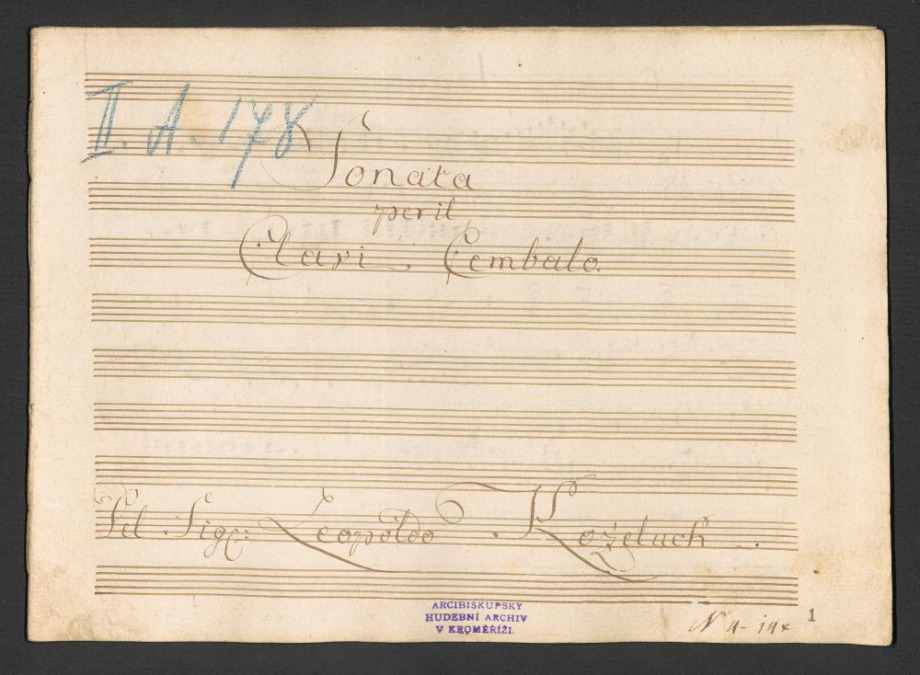 II. A. 178
Sonata
per il
Clavi Cembalo.
Del Sigr: Leopoldo Kożeluch.
ARCIBISKUPSKÝ
HUDEBNÍ ARCHIV
V KROMĚŘÍŽI.
1